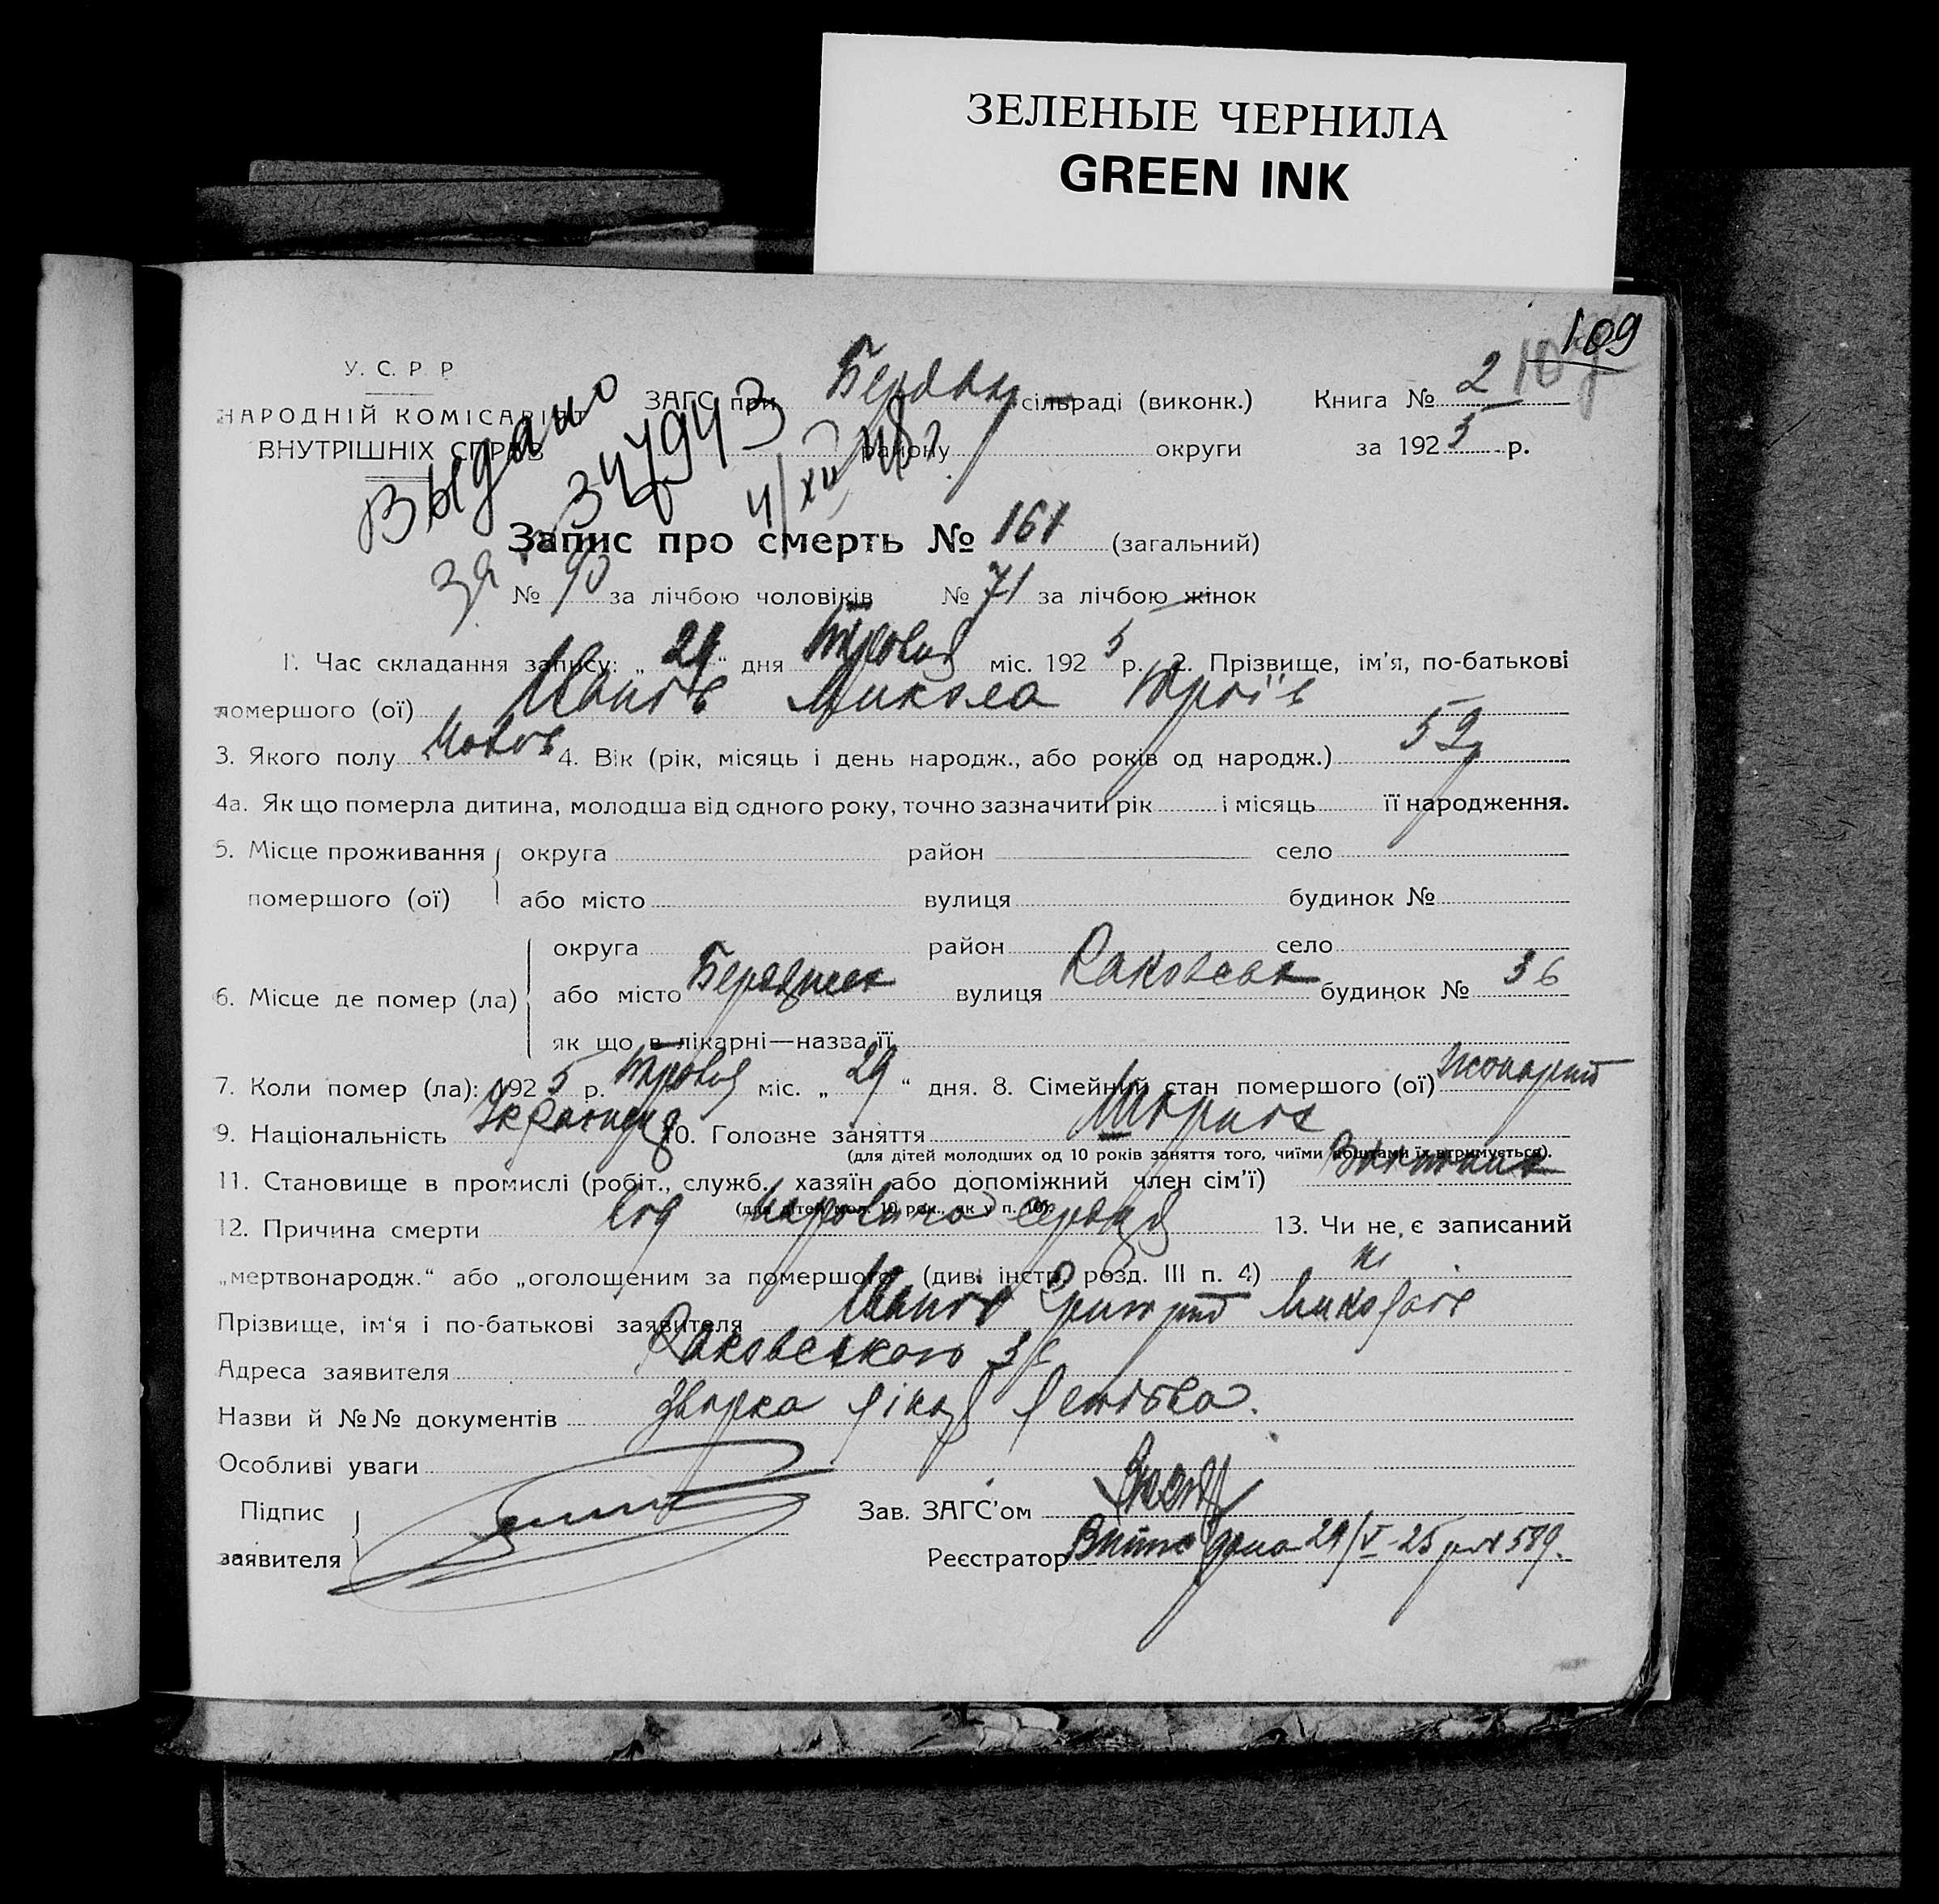 ЗЕЛЕНЫЕ ЧЕРНИЛА
GREEN INK
109
У. С. Р. Р
НАРОДНІЙ КОМІСАРІЯТ
ВНУТРІШНІХ СПРАВ
Выдано
за 347943
4/XII 48 г.
ЗАГС при Бердян сільраді (виконк.) Книга № 2
району округи за 1925 р.
Запис про смерть № 161 (загальний)
№ 90 за лічбою чоловіків № 71 за лічбою жінок
1. Час складання запису: „29“ дня Травня міс. 1925 р. 2. Прізвище, ім'я, по-батькові
помершого (ої) Іванов Микола
3. Якого полу 4. Вік (рік, місяць і день народж., або років од народж.) 52
4а. Як що померла дитина, молодша від одного року, точно зазначити рік і місяць її народження.
5. Місце проживання округа район село
помершого (ої) або місто вулиця будинок №
округа район село
6. Місце де помер (ла) або місто Бердянськ вулиця Раковськ будинок № 36
як що в лікарні—назва її
7. Коли помер (ла): 1925 р. Травня міс. „29“ дня. 8. Сімейний стан помершого (ої) жонатий
9. Національність Українець 10. Головне заняття
(для дітей молодших од 10 років заняття того, чиїми коштами їх втримується).
11. Становище в промислі (робіт., служб., хазяїн або допоміжний член сім'ї)
(для дітей мол. 10 рок., як у п. 10)
12. Причина смерти серця 13. Чи не є записаний
„мертвонародж.“ або „оголошеним за помершого“ (див. інстр. розд. III п. 4) ні
Прізвище, ім'я і по-батькові заявителя Іванов Григорій Миколаїв
Адреса заявителя Раковського 36
Назви й №№ документів
Особливі уваги
Підпис
заявителя
Зав. ЗАГС'ом
Реєстратор 29/V-25 589.